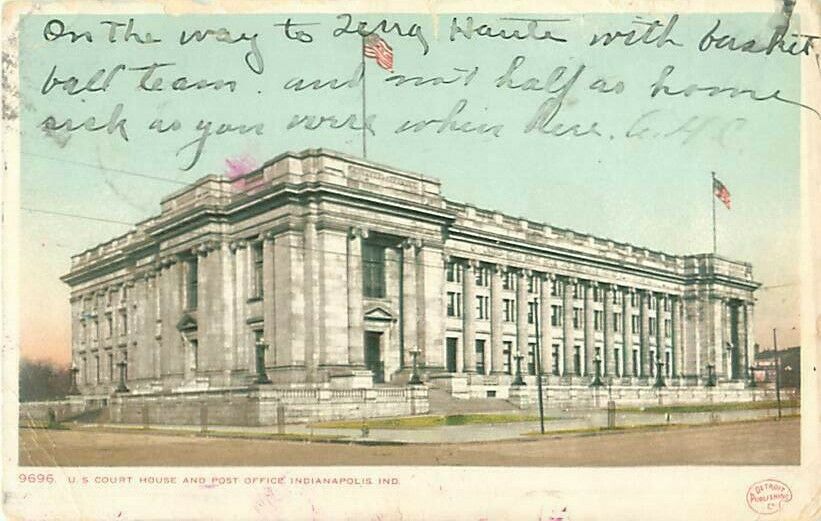 On the way to Terra Haute with basket
ball team. and not half as home
sick as you were when here. A.H.C.
9696. U. S. COURT HOUSE AND POST OFFICE, INDIANAPOLIS, IND.
DETROIT
PUBLISHING
Co